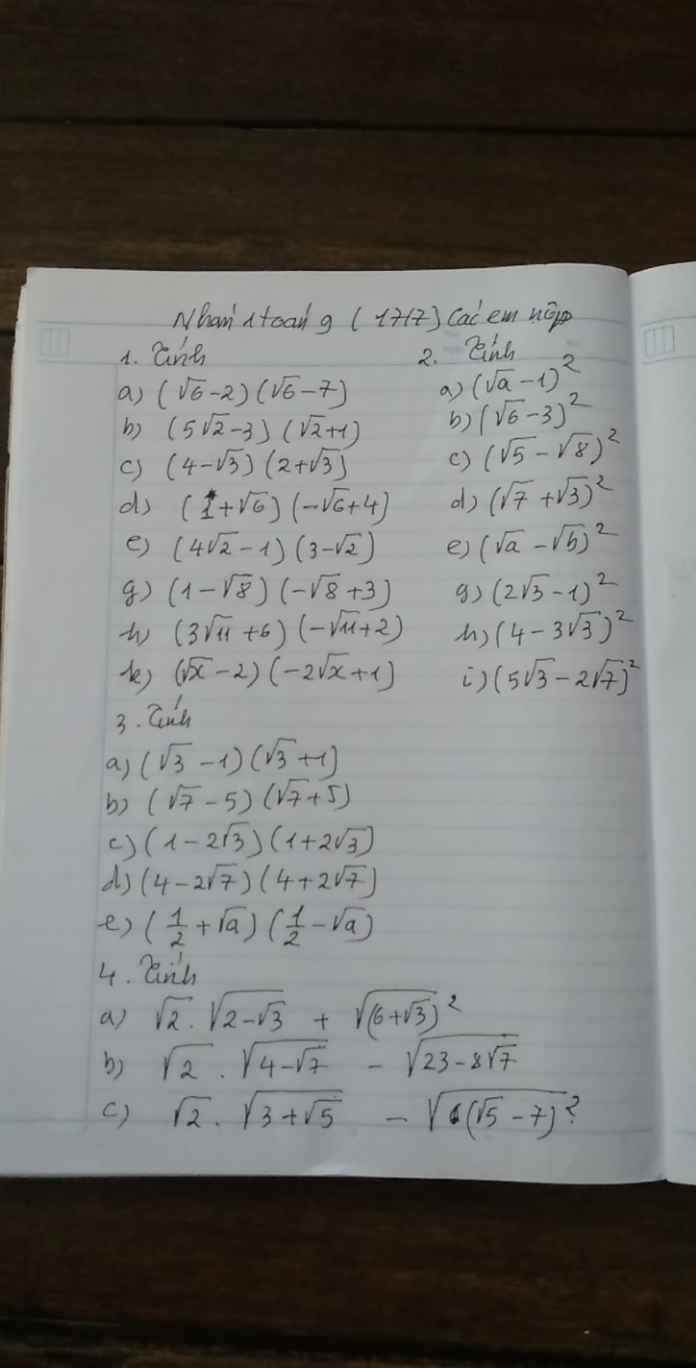 Nhóm toán 9 (17/7) Các em nộp
1. Tính
a) (√6-2)(√6-7)
b) (5√2-3)(√2+1)
c) (4-√3)(2+√3)
d) (1+√6)(-√6+4)
e) (4√2-1)(3-√2)
g) (1-√8)(-√8+3)
h) (3√11+6)(-√11+2)
k) (√x-2)(-2√x+1)
2. Tính
a) (√a-1)²
b) (√6-3)²
c) (√5-√8)²
d) (√7+√3)²
e) (√a-√b)²
g) (2√3-1)²
h) (4-3√3)²
i) (5√3-2√7)²
3. Tính
a) (√3-1)(√3+1)
b) (√7-5)(√7+5)
c) (1-2√3)(1+2√3)
d) (4-2√7)(4+2√7)
e) (1/2+√a)(1/2-√a)
4. Tính
a) √2.√(2-√3) + √(6+√3)²
b) √2.√(4-√7) - √(23-8√7)
c) √2.√(3+√5) - √(√5-7)²